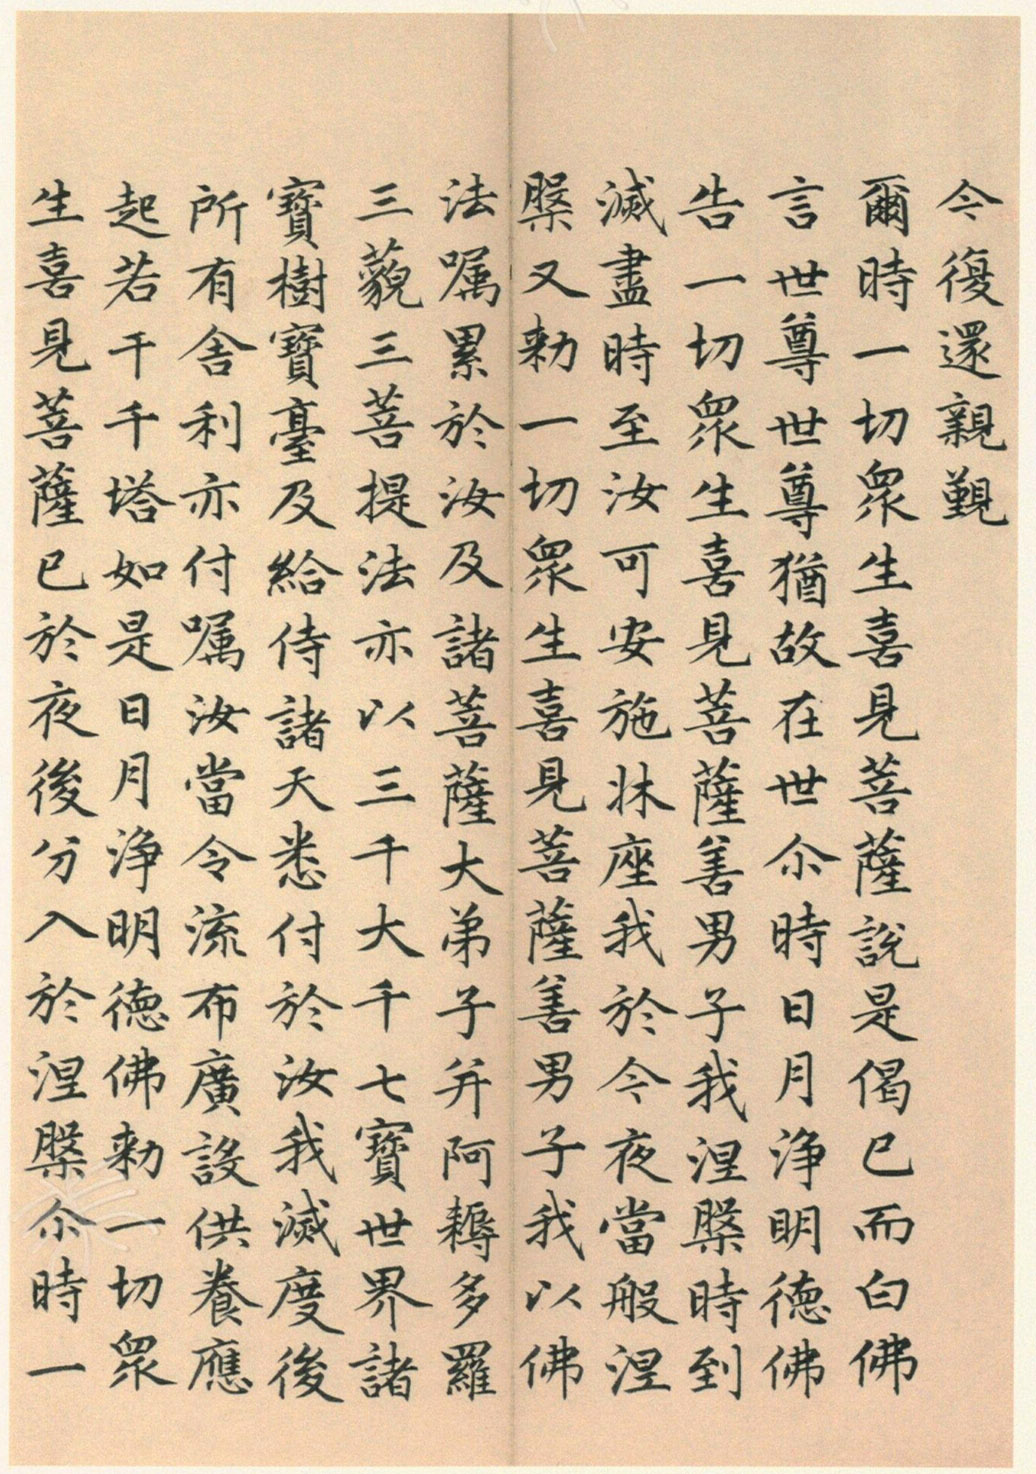 今復還親覲
爾時一切衆生喜見菩薩說是偈已而白佛
言世尊世尊猶故在世尒時日月淨明德佛
告一切衆生喜見菩薩善男子我涅槃時到
滅盡時至汝可安施牀座我於今夜當般涅
槃又勑一切衆生喜見菩薩善男子我以佛
法嘱累於汝及諸菩薩大弟子并阿耨多羅
三藐三菩提法亦以三千大千七寶世界諸
寶樹寶臺及給侍諸天悉付於汝我滅度後
所有舍利亦付嘱汝當令流布廣設供養應
起若干千塔如是日月淨明德佛勑一切衆
生喜見菩薩已於夜後分入於涅槃尒時一